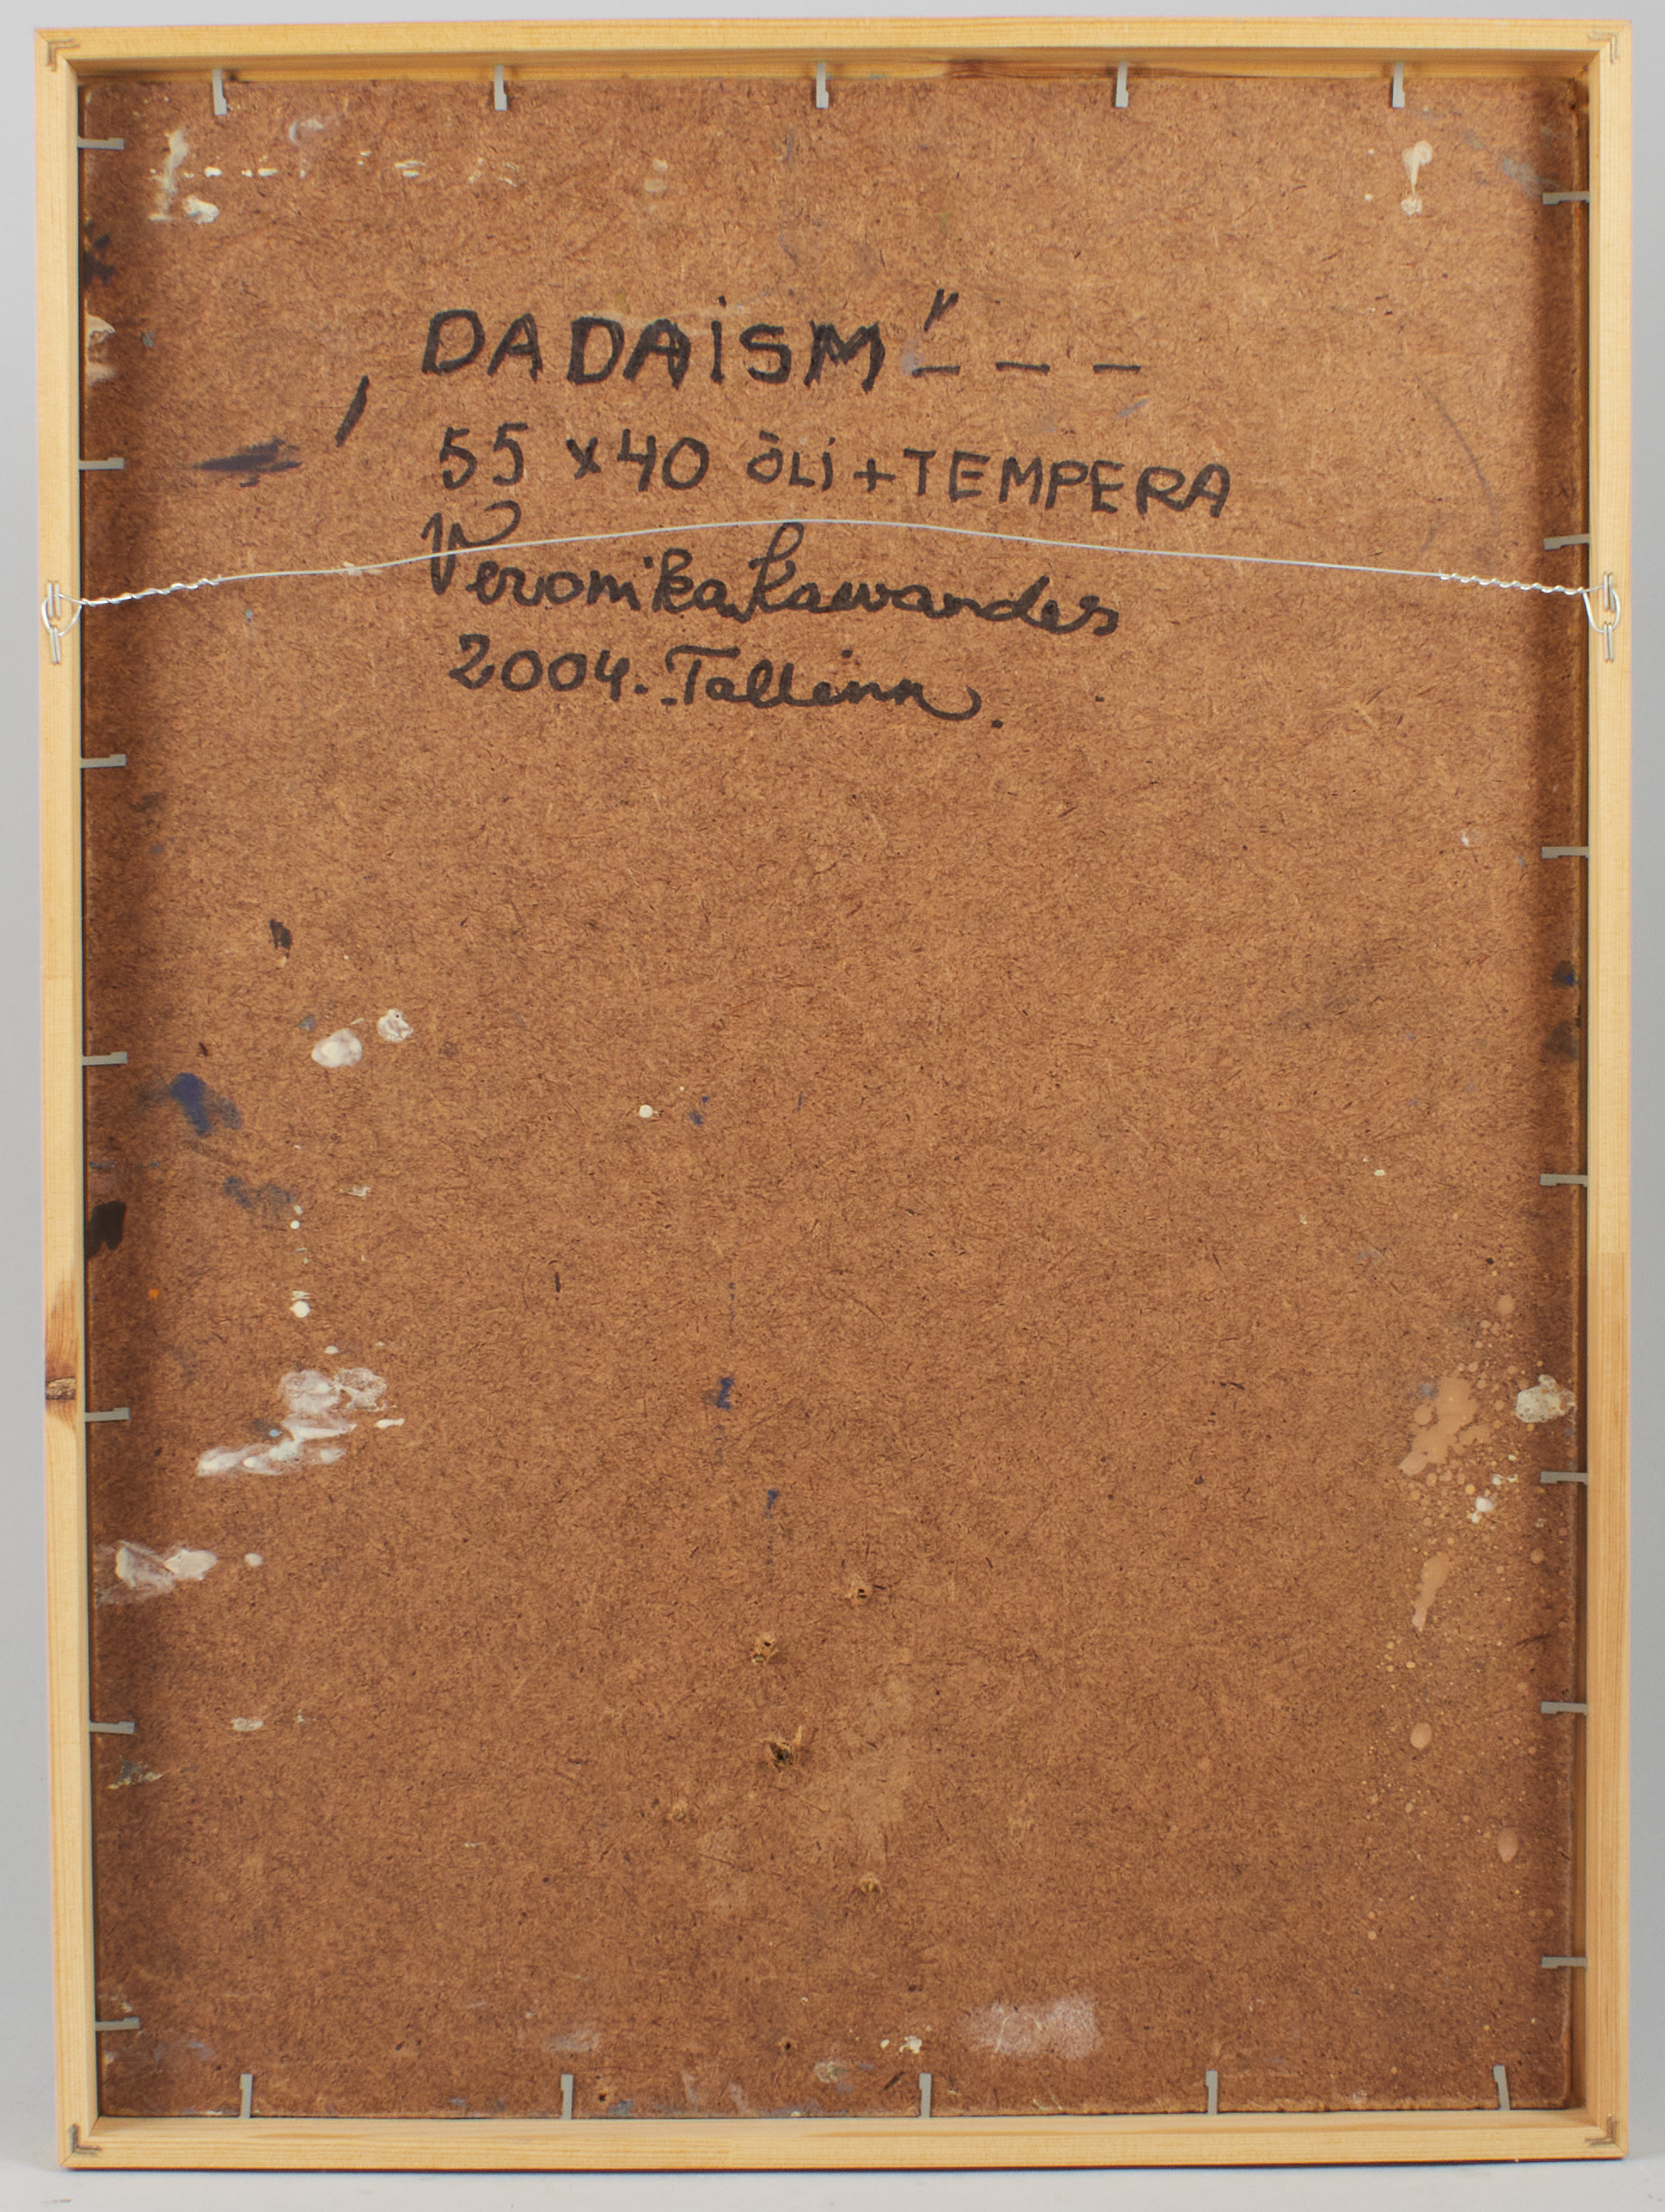 „DADAiSM" – – –
55 x 40 õLi + TEMPERA
Veronika
2004. Tallinn.